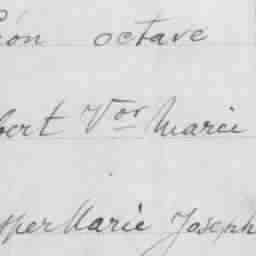 éon octave
bert Vor Marie
sper Marie Joseph